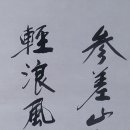 參差山
輕浪風